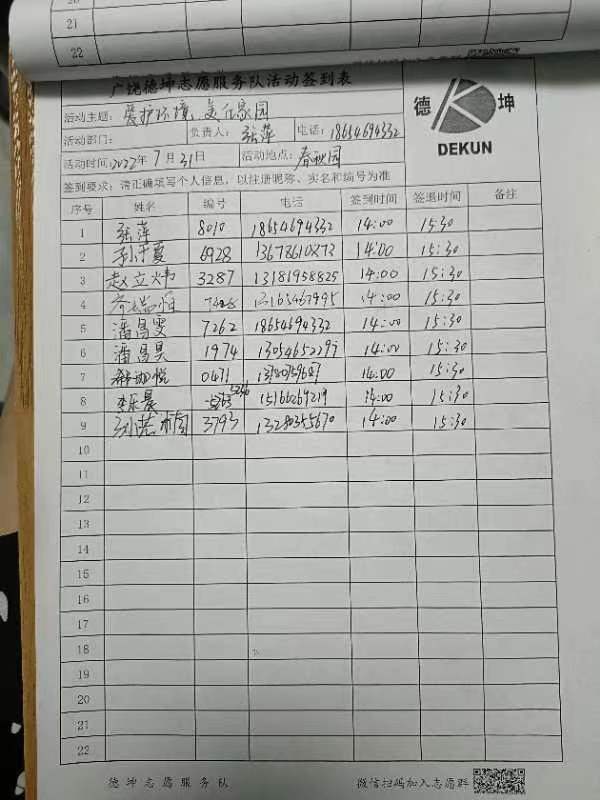 21
22
广饶德坤志愿服务队活动签到表
活动主题: 爱护环境,美化家园
活动部门: 负责人: 张萍 电话: 18654694332
活动时间: 2022年7月31日 活动地点: 春秋园
签到要求:请正确填写个人信息,以注册昵称、实名和编号为准
德 坤
DEKUN
序号 姓名 编号 电话 签到时间 签退时间 备注
1 张萍 8010 18654694332 14:00 15:30
2 6928 13678610873 14:00 15:30
3 赵立炜 3287 13181958825 14:00 15:30
4 14:00 15:30
5 潘昌雯 7262 18654694332 14:00 15:30
6 潘昌昊 1974 13054652297 14:00 15:30
7 0471 14:00 15:30
8 李乐晨 15166269219 14:00 15:30
9 3793 13280355670 14:00 15:30
10
11
12
13
14
15
16
17
18
19
20
21
22
德坤志愿服务队 微信扫码加入志愿群